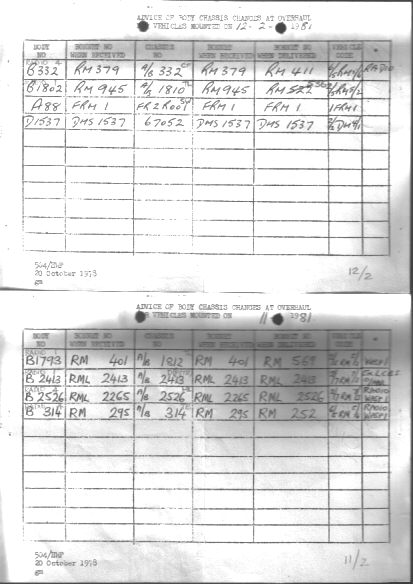 ADVICE OF BODY CHASSIS CHANGES AT OVERHAUL
VEHICLES MOUNTED ON 12-2- 1981
BODY NO BONNET NO WHEN RECEIVED CHASSIS NO BONNET WHEN RECEIVED BONNET NO WHEN DELIVERED VEHICLE CODE
B332 RM 379 A/B 332 RM 379 RM 411 RADIO
B1802 RM 945 1810 RM945 RM
A88 FRM 1 FR2R001 FRM 1 FRM 1 1FRM1
D1537 DMS 1537 67052 DMS 1537 DMS 1537
504/EMP
20 October 1978
gm
12/2
ADVICE OF BODY CHASSIS CHANGES AT OVERHAUL
VEHICLES MOUNTED ON 11 1981
BODY NO BONNET NO WHEN RECEIVED CHASSIS NO BONNET NO WHEN RECEIVED BONNET NO WHEN DELIVERED VEHICLE CODE
B1793 RM 401 A/B 1812 RM 401 RM 569
B 2413 RML 2413 A/B 2413 RML 2413 RML 2413
B 2526 RML 2265 A/B 2526 RML 2265 RML 2526 RADIO
B 314 RM 295 A/B 314 RM 295 RM 252 RADIO
504/EMP
20 October 1978
gm
11/2